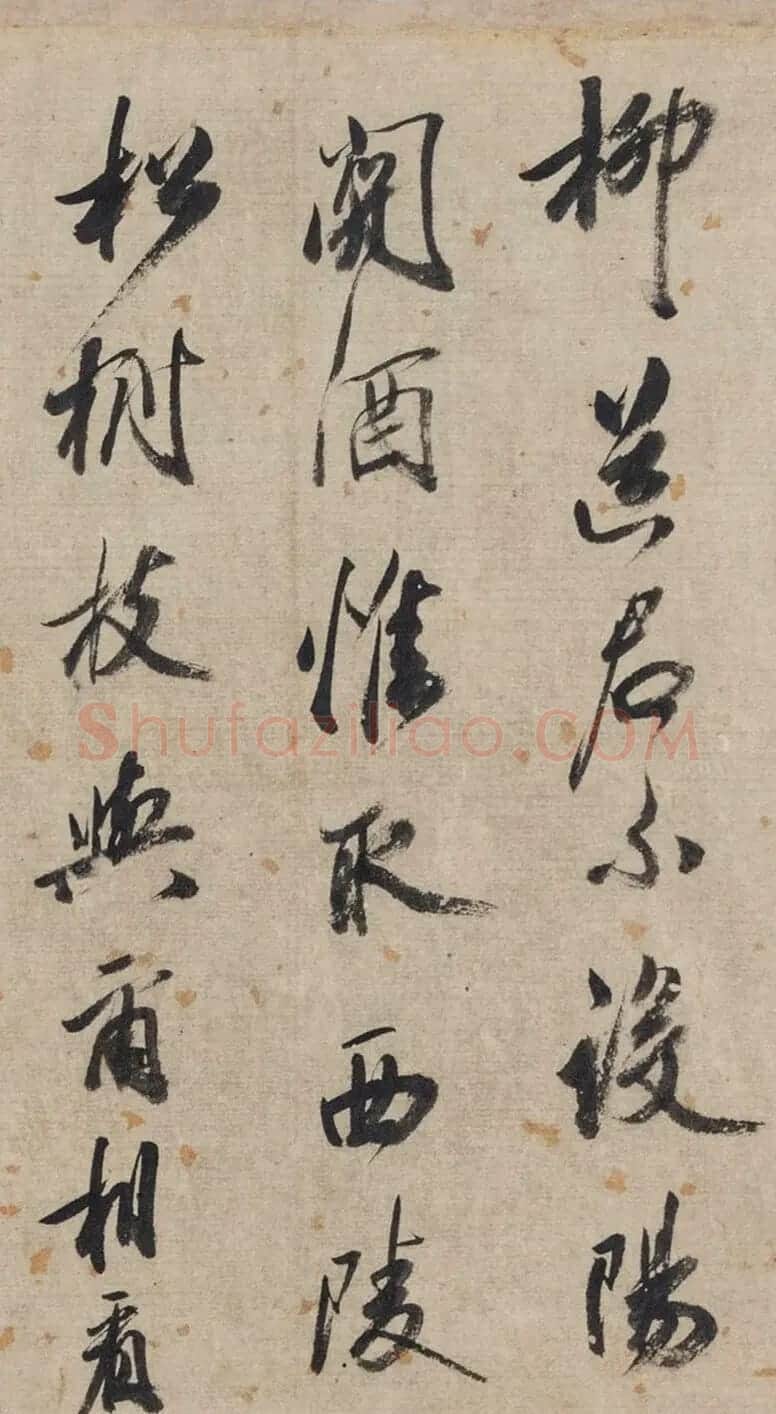 柳送君不設陽
關酒惟取西陵
松樹枝與爾相看
Shufaziliao.COM